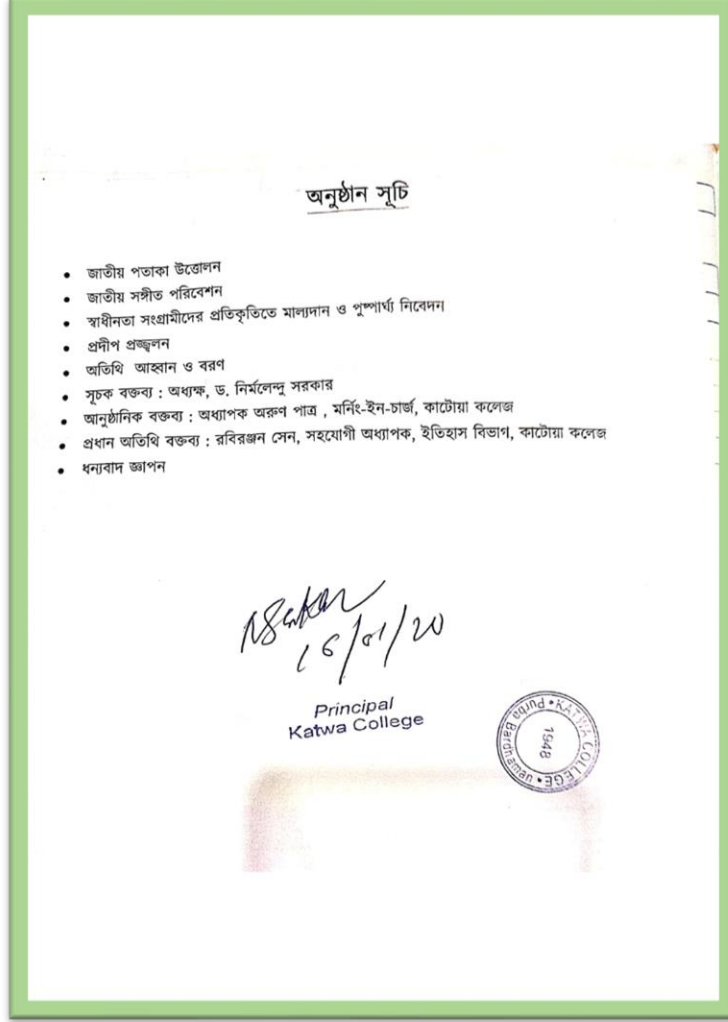 অনুষ্ঠান সূচি
• জাতীয় পতাকা উত্তোলন
• জাতীয় সঙ্গীত পরিবেশন
• স্বাধীনতা সংগ্রামীদের প্রতিকৃতিতে মাল্যদান ও পুষ্পার্ঘ্য নিবেদন
• প্রদীপ প্রজ্জ্বলন
• অতিথি আহ্বান ও বরণ
• সূচক বক্তব্য : অধ্যক্ষ, ড. নির্মলেন্দু সরকার
• আনুষ্ঠানিক বক্তব্য : অধ্যাপক অরুণ পাত্র , মর্নিং-ইন-চার্জ, কাটোয়া কলেজ
• প্রধান অতিথি বক্তব্য : রবিরঞ্জন সেন, সহযোগী অধ্যাপক, ইতিহাস বিভাগ, কাটোয়া কলেজ
• ধন্যবাদ জ্ঞাপন
Principal
Katwa College
KATWA COLLEGE • Purba Bardhaman •
1948